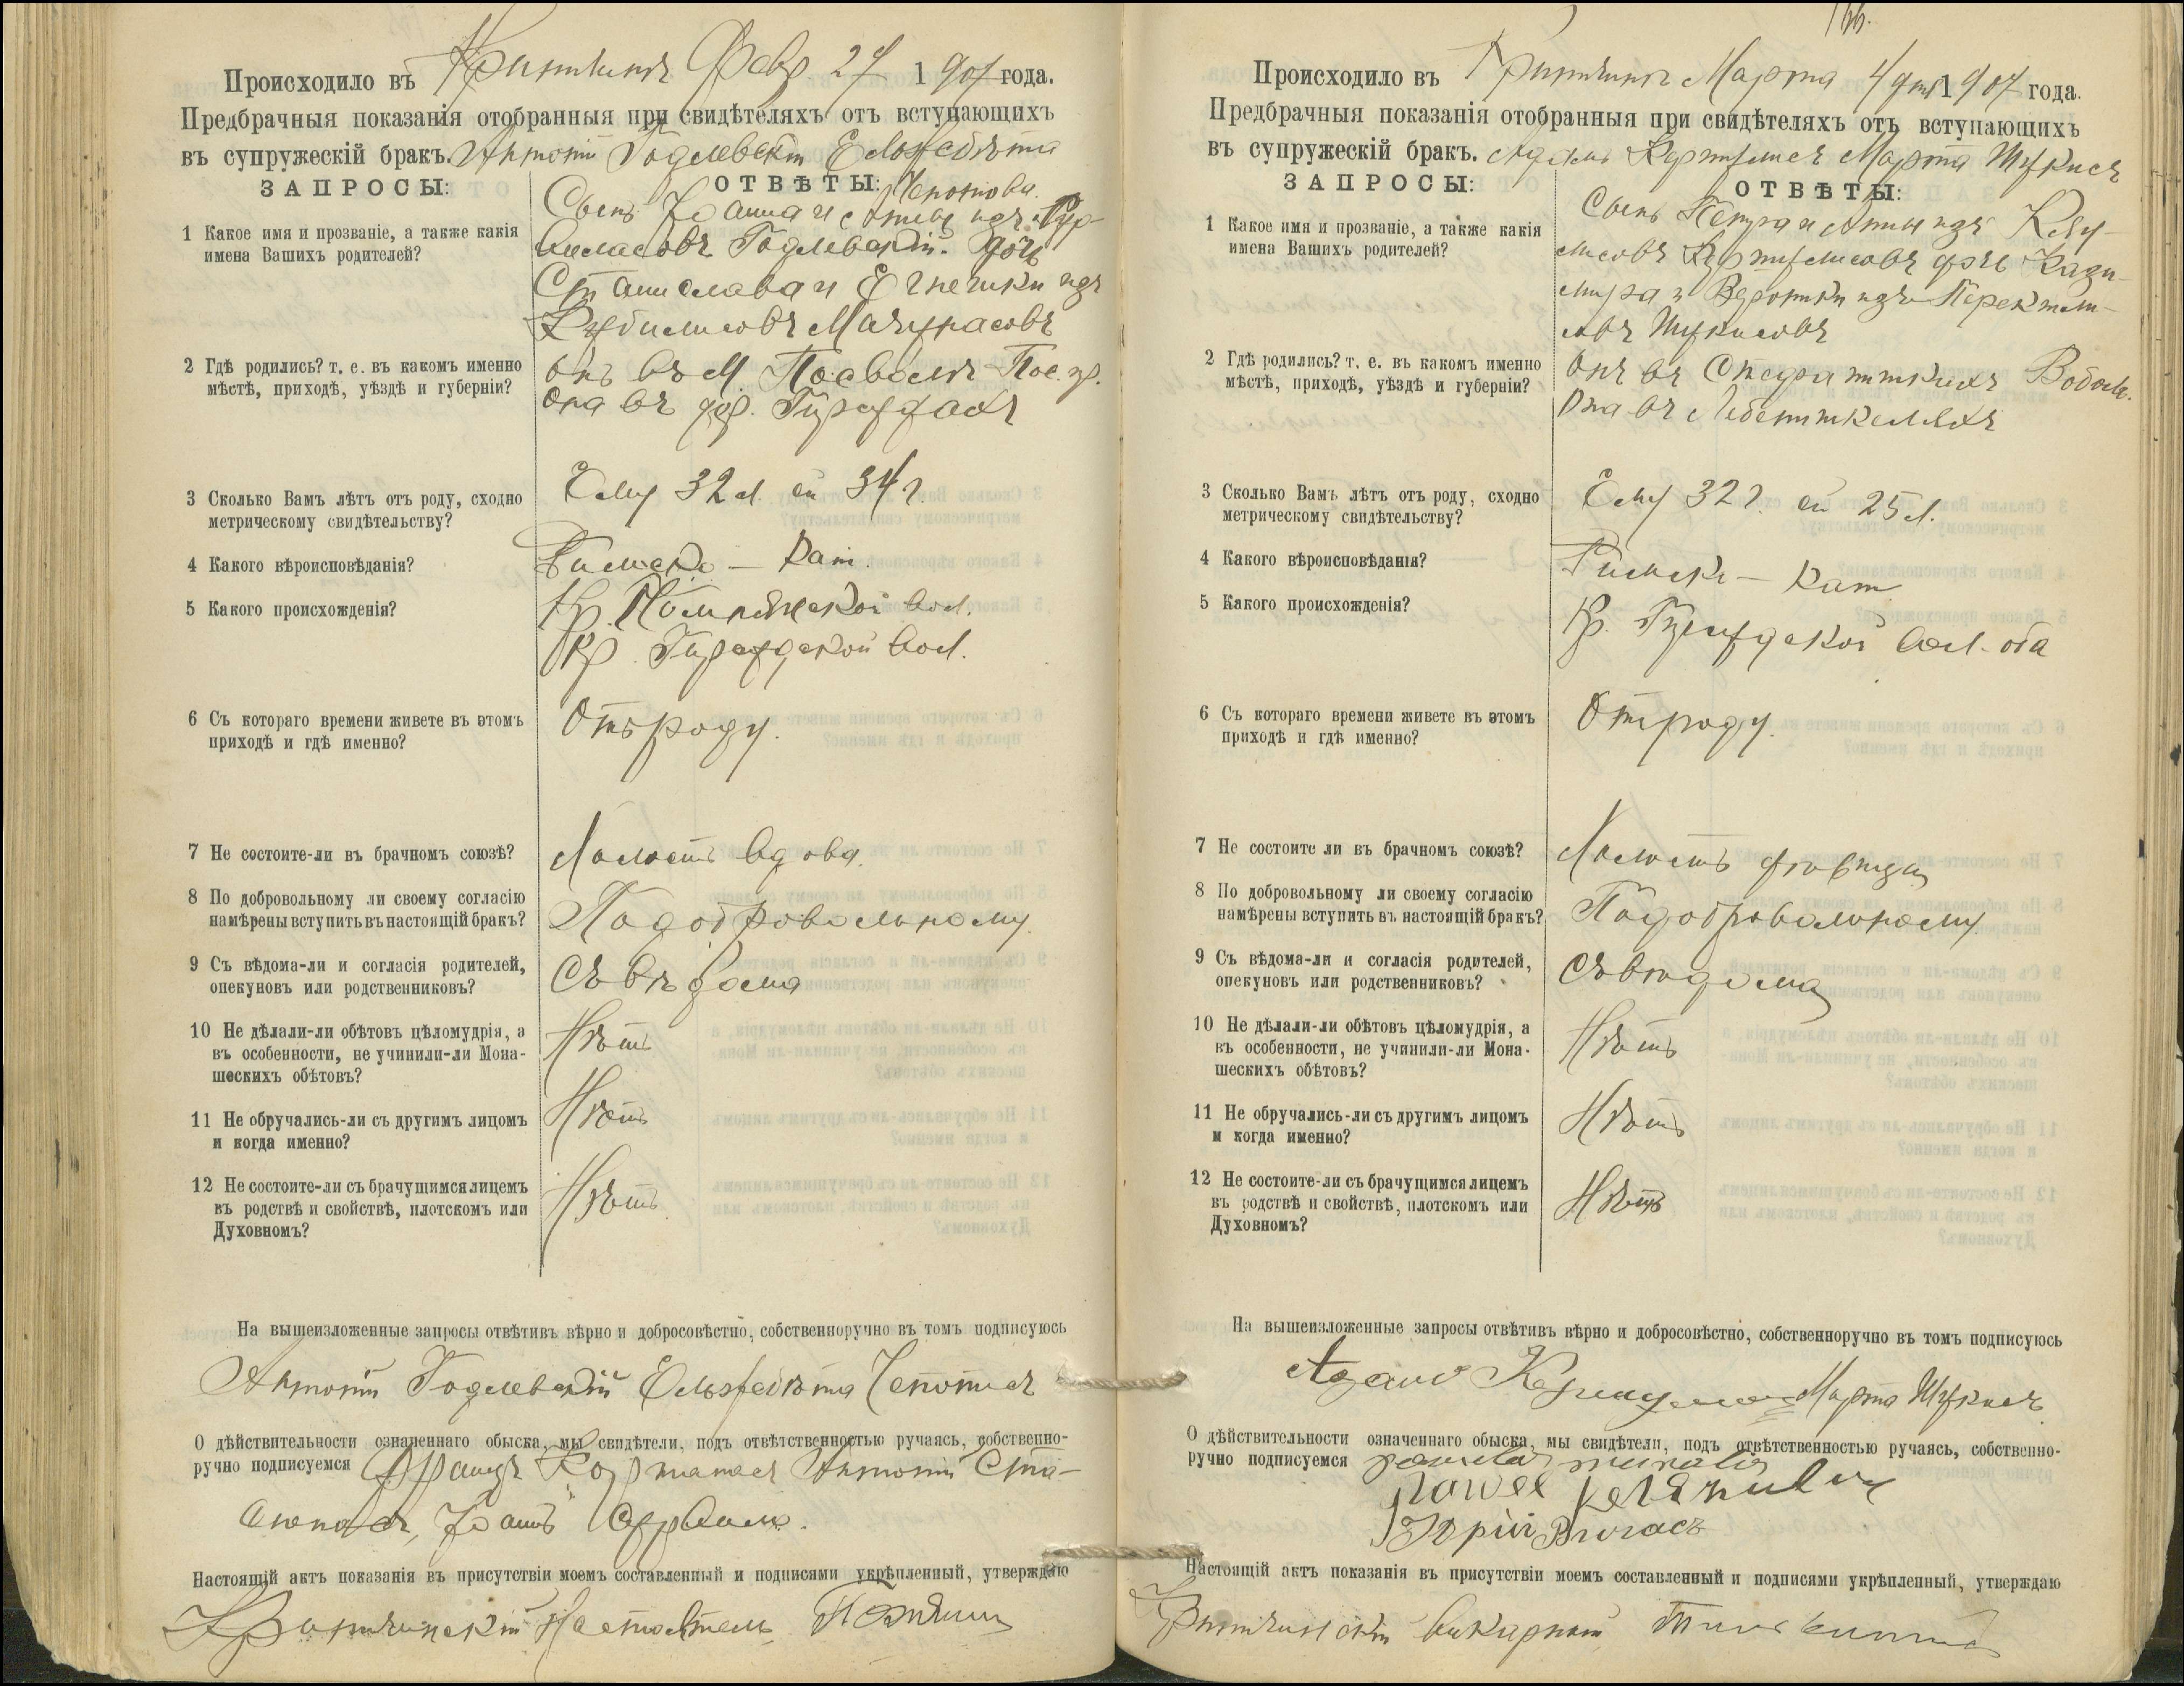 Происходило въ Февр 27 1907 года.
Предбрачныя показанія отобранныя при свидѣтеляхъ отъ вступающихъ
въ супружескій бракъ. Антоній Годлевскій Ельжебѣта
ЗАПРОСЫ:
ОТВѢТЫ:
1 Какое имя и прозваніе, а также какія
имена Вашихъ родителей?
Сынъ Іоанна и Анны изъ
Годлевскій. дочь
Станислава и изъ
2 Гдѣ родились? т. е. въ какомъ именно
мѣстѣ, приходѣ, уѣздѣ и губерніи?
онъ въ м. Посволѣ Пос. пр.
Она въ дер.
3 Сколько Вамъ лѣтъ отъ роду, сходно
метрическому свидѣтельству?
Ему 32 л. ей 34 г
4 Какого вѣроисповѣданія?
Римско – Кат.
5 Какого происхожденія?
Кр. вол.
Кр. вол.
6 Съ котораго времени живете въ этомъ
приходѣ и гдѣ именно?
Отъ роду.
7 Не состоите-ли въ брачномъ союзѣ?
Холостъ вдова.
8 По добровольному ли своему согласію
намѣрены вступить въ настоящій бракъ?
По добровольному.
9 Съ вѣдома-ли и согласія родителей,
опекуновъ или родственниковъ?
Съ вѣдома
10 Не дѣлали-ли обѣтовъ цѣломудрія, а
въ особенности, не учинили-ли Мона-
шескихъ обѣтовъ?
Нѣтъ
11 Не обручались-ли съ другимъ лицомъ
и когда именно?
Нѣтъ
12 Не состоите-ли съ брачущимся лицемъ
въ родствѣ и свойствѣ, плотскомъ или
Духовномъ?
Нѣтъ
На вышеизложенные запросы отвѣтивъ вѣрно и добросовѣстно, собственноручно въ томъ подписуюсь
Антоній Годлевскій Ельжебѣта
О дѣйствительности означеннаго обыска, мы свидѣтели, подъ отвѣтственностью ручаясь, собственно-
ручно подписуемся Францъ Антоній
Іоаннъ
Настоящій актъ показанія въ присутствіи моемъ составленный и подписями укрѣпленный, утверждаю
Настоятель
Происходило въ Марта 4 дня 1907 года.
Предбрачныя показанія отобранныя при свидѣтеляхъ отъ вступающихъ
въ супружескій бракъ. Адамъ Марта Шукись
ЗАПРОСЫ:
ОТВѢТЫ:
1 Какое имя и прозваніе, а также какія
имена Вашихъ родителей?
Сынъ Петра и Анны изъ
дочь Кази-
мира и изъ
2 Гдѣ родились? т. е. въ какомъ именно
мѣстѣ, приходѣ, уѣздѣ и губерніи?
Онъ въ
Она въ
3 Сколько Вамъ лѣтъ отъ роду, сходно
метрическому свидѣтельству?
Ему 32 г. ей 25 л.
4 Какого вѣроисповѣданія?
Римско – Кат
5 Какого происхожденія?
Кр. вол. оба
6 Съ котораго времени живете въ этомъ
приходѣ и гдѣ именно?
Отъ роду.
7 Не состоите ли въ брачномъ союзѣ?
Холостъ дѣвица
8 По добровольному ли своему согласію
намѣрены вступить въ настоящій бракъ?
По добровольному
9 Съ вѣдома-ли и согласія родителей,
опекуновъ или родственниковъ?
Съ вѣдома
10 Не дѣлали-ли обѣтовъ цѣломудрія, а
въ особенности, не учинили-ли Мона-
шескихъ обѣтовъ?
Нѣтъ
11 Не обручались-ли съ другимъ лицомъ
и когда именно?
Нѣтъ
12 Не состоите-ли съ брачущимся лицемъ
въ родствѣ и свойствѣ, плотскомъ или
Духовномъ?
Нѣтъ
На вышеизложенные запросы отвѣтивъ вѣрно и добросовѣстно, собственноручно въ томъ подписуюсь
Адамъ Марта Шукись
О дѣйствительности означеннаго обыска, мы свидѣтели, подъ отвѣтственностью ручаясь, собственно-
ручно подписуемся
Настоящій актъ показанія въ присутствіи моемъ составленный и подписями укрѣпленный, утверждаю
викарный